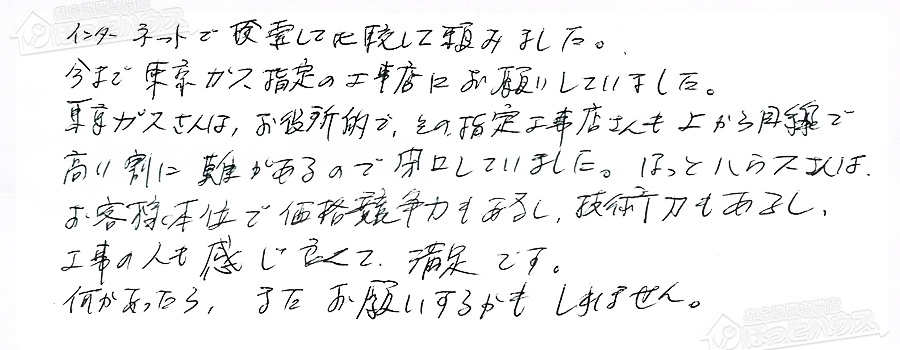 インターネットで検索して比較して頼みました。
今まで東京ガス指定の工事店にお願いしていました。
東京ガスさんは、お役所的で、その指定工事店さんも上から目線で
高い割に難があるので閉口していました。ほっとハウスさんは、
お客様本位で価格競争力もあるし、技術力もあるし、
工事の人も感じ良くて、満足です。
何かあったら、またお願いするかもしれません。
ほっとハウス